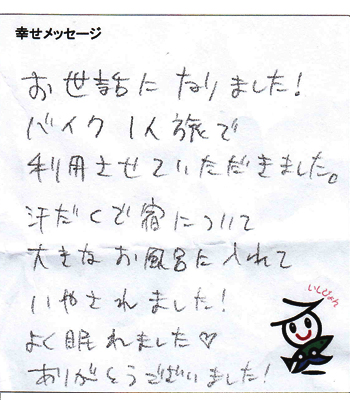 幸せメッセージ
お世話になりました!
バイク1人旅で
利用させていただきました。
汗だくで宿について
大きなお風呂に入れて
いやされました!
よく眠れました♡
ありがとうございました!